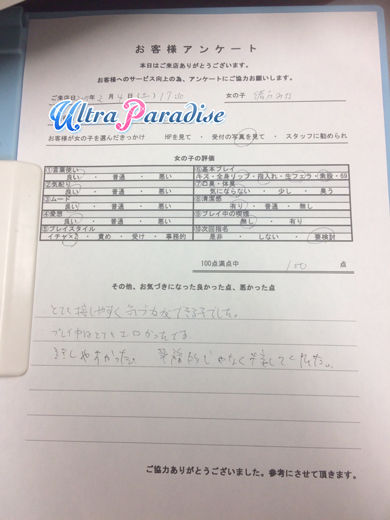 お客様アンケート
本日はご来店ありがとうございます。
お客様へのサービス向上の為、アンケートにご協力お願いします。
ご来店日 月 4日 女の子
Ultra Paradise
お客様が女の子を選んだきっかけ HPを見て ・ 受付の写真を見て ・ スタッフに勧められ
女の子の評価
①言葉使い ⑥基本プレイ
良い ・ 普通 ・ 悪い キス・全身リップ・指入れ・生フェラ・素股・69
②気配り ⑦口臭・体臭
良い ・ 普通 ・ 悪い 気にならない ・ 少し ・ 臭う
③ムード ⑧清潔感
良い ・ 普通 ・ 悪い 有り ・ 普通 ・ 無し
④愛想 ⑨プレイ中の喫煙
良い ・ 普通 ・ 悪い 無し ・ 有り
⑤プレイスタイル ⑩次回指名
イチャ×2 ・ 責め ・ 受け ・ 事務的 是非 ・ しない ・ 要検討
100点満点中 100 点
その他、お気づきになった良かった点、悪かった点
とても接しやすく
プレイ中はとてもエロかったです
ご協力ありがとうございました。参考にさせて頂きます。